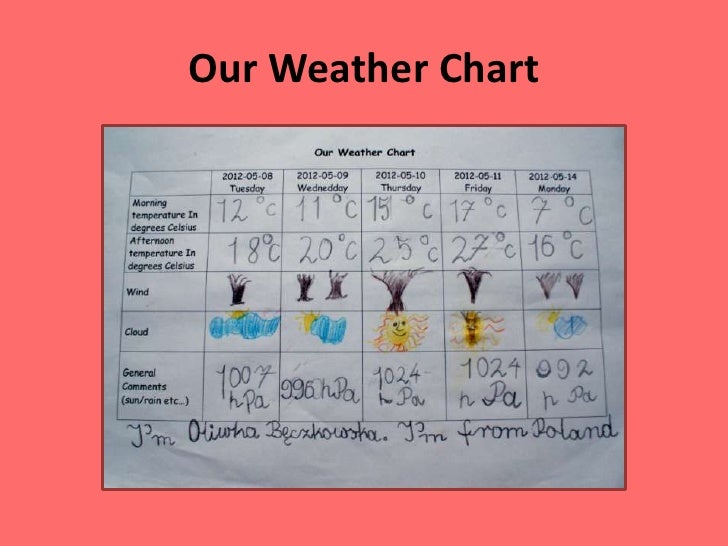 Our Weather Chart
Our Weather Chart
2012-05-08 2012-05-09 2012-05-10 2012-05-11 2012-05-14
Tuesday Wednedday Thursday Friday Monday
Morning
temperature In
degrees Celsius
12 °C 11 °C 15 °C 17 °C 7 °C
Afternoon
temperature In
degrees Celsius
18°C 20°C 25°C 27°C 16°C
Wind
Cloud
General
Comments
(sun/rain etc...)
1007 hPa 996 hPa 1024 hPa 1024 hPa 992 hPa
I'm Oliwka Bęczkowska. I'm from Poland